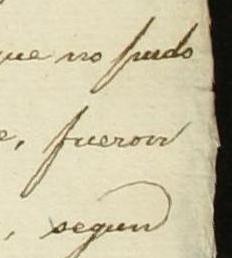 que no pudo
e, fueron
, segun